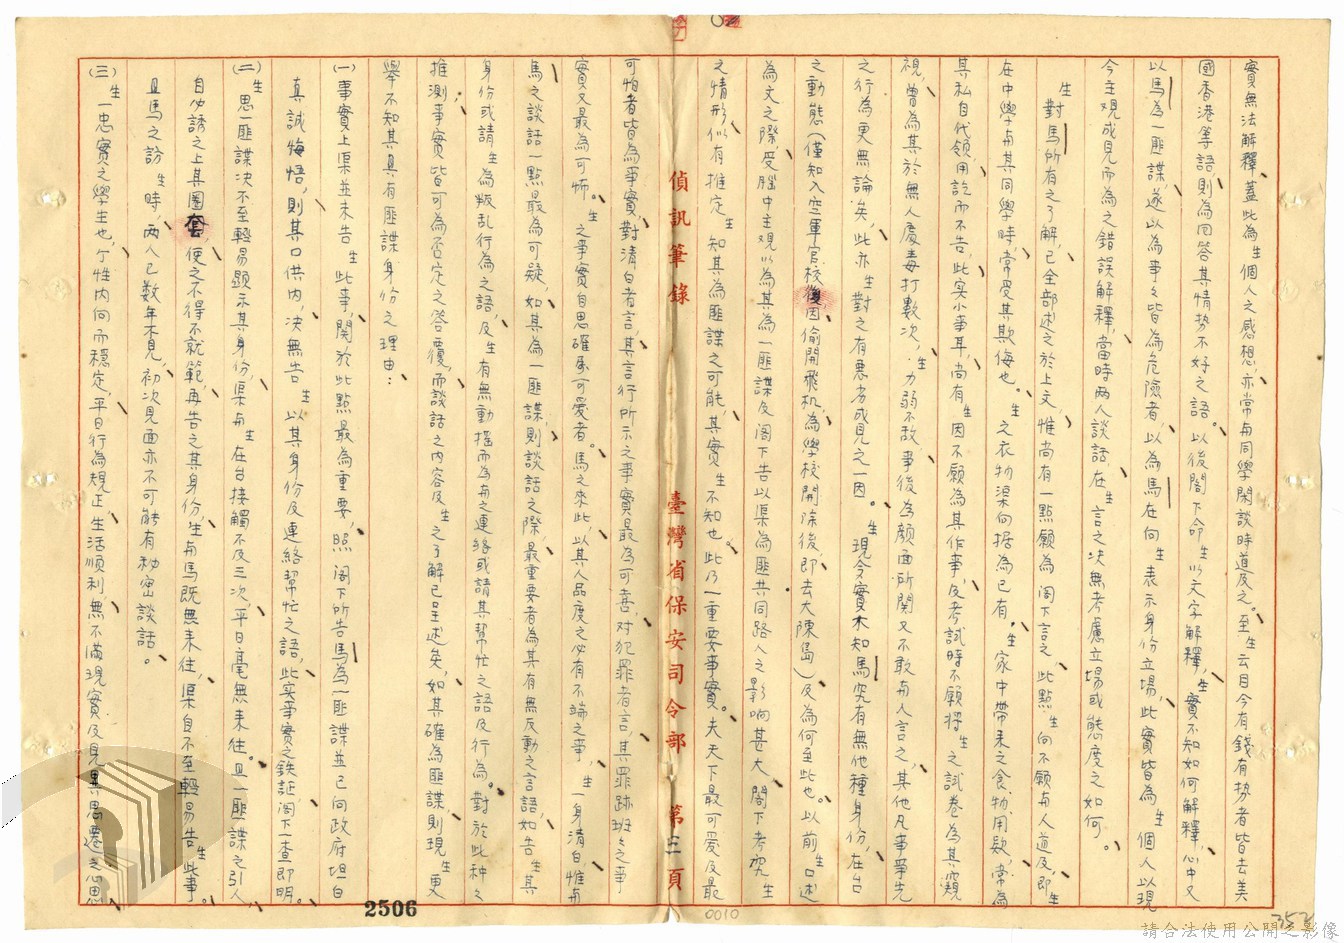 實無法解釋，蓋此為生個人之感想，亦常與同學閑談時道及之。至生云目今有錢有勢者皆去美
國香港等語，則為回答其情勢不好之語。以後閣下命生以文字解釋，生實不知如何解釋，心中又
以馬為一匪諜，遂以為事々皆為危險者，以為馬在向生表示身份立場，此實皆為生個人以現
今主觀成見而為之錯誤解釋，當時兩人談話，在生言之决無考慮立場或態度之如何。
生對馬所有之了解，已全部述之於上文，惟尚有一點願為閣下言之，此點生向不願與人道及，即生
在中學與其同學時，常受其欺侮也。生之衣物渠向据為已有，生家中帶來之食物用款，常為
其私自代領，用訖而不告，此实小事耳，尚有生因不願為其作事，及考試時不願將生之試卷為其窺
視，曾為其於無人處毒打數次，生力弱不敌，事後為顏面所関又不敢與人言之，其他凡事爭先
之行為更無論矣，此亦生對之有惡劣成見之一因。生現今實未知馬究有無他種身份，在台
之動態（僅知入空軍官校復因偷開飛机，為學校開除後，即去大陳島）及為何至此也。以前生口述
為文之際，受腦中主觀以為其為一匪諜及閣下告以渠為匪共同路人之影响甚大，閣下考究生
之情形似有推定生知其為匪諜之可能，其實生不知也。此乃一重要事實。夫天下最可爱及最
偵訊筆錄 臺灣省保安司令部 第三頁
可怕者皆為事實，對清白者言，其言行所示之事實最為可喜，对犯罪者言，其罪跡班々之事
實又最為可怖。生之事實自思確属可愛者。馬之來此，以其人品度之必有不端之事，生一身清白，惟與
馬之談話一點最為可疑，如其為一匪諜，則談話之際，最重要者為其有無反動之言語，如告生其
身份或請生為叛乱行為之語，及生有無動搖而為與之連絡或請其幫忙之語及行為。對於此种之
推測事實皆可為否定之答覆，而談話之內容及生之了解已呈述矣，如其確為匪諜，則現生更
舉不知其具有匪諜身份之理由：
（一）事實上渠並未告生此事，関於此點最為重要，照閣下所告馬為一匪諜並已向政府坦白
真誠悔悟，則其口供內，决無告生以其身份及連絡幫忙之語，此实事實之鉄証，閣下一查即明。
（二）生思一匪諜决不至輕易顯示其身份，渠與生在台接觸不及三次，平日毫無來往。且一匪諜之引人
自必誘之上其圈套，使之不得不就範，再告之其身份，生與馬既無來往，渠自不至輕易告生此事。
且馬之訪生時，兩人已数年不見，初次見面亦不可能有秘密談話。
（三）生一忠實之學生也，个性內向而穩定，平日行為規正，生活順利，無不滿現實及見異思遷之心思
2506
0010
352
請合法使用公開之影像